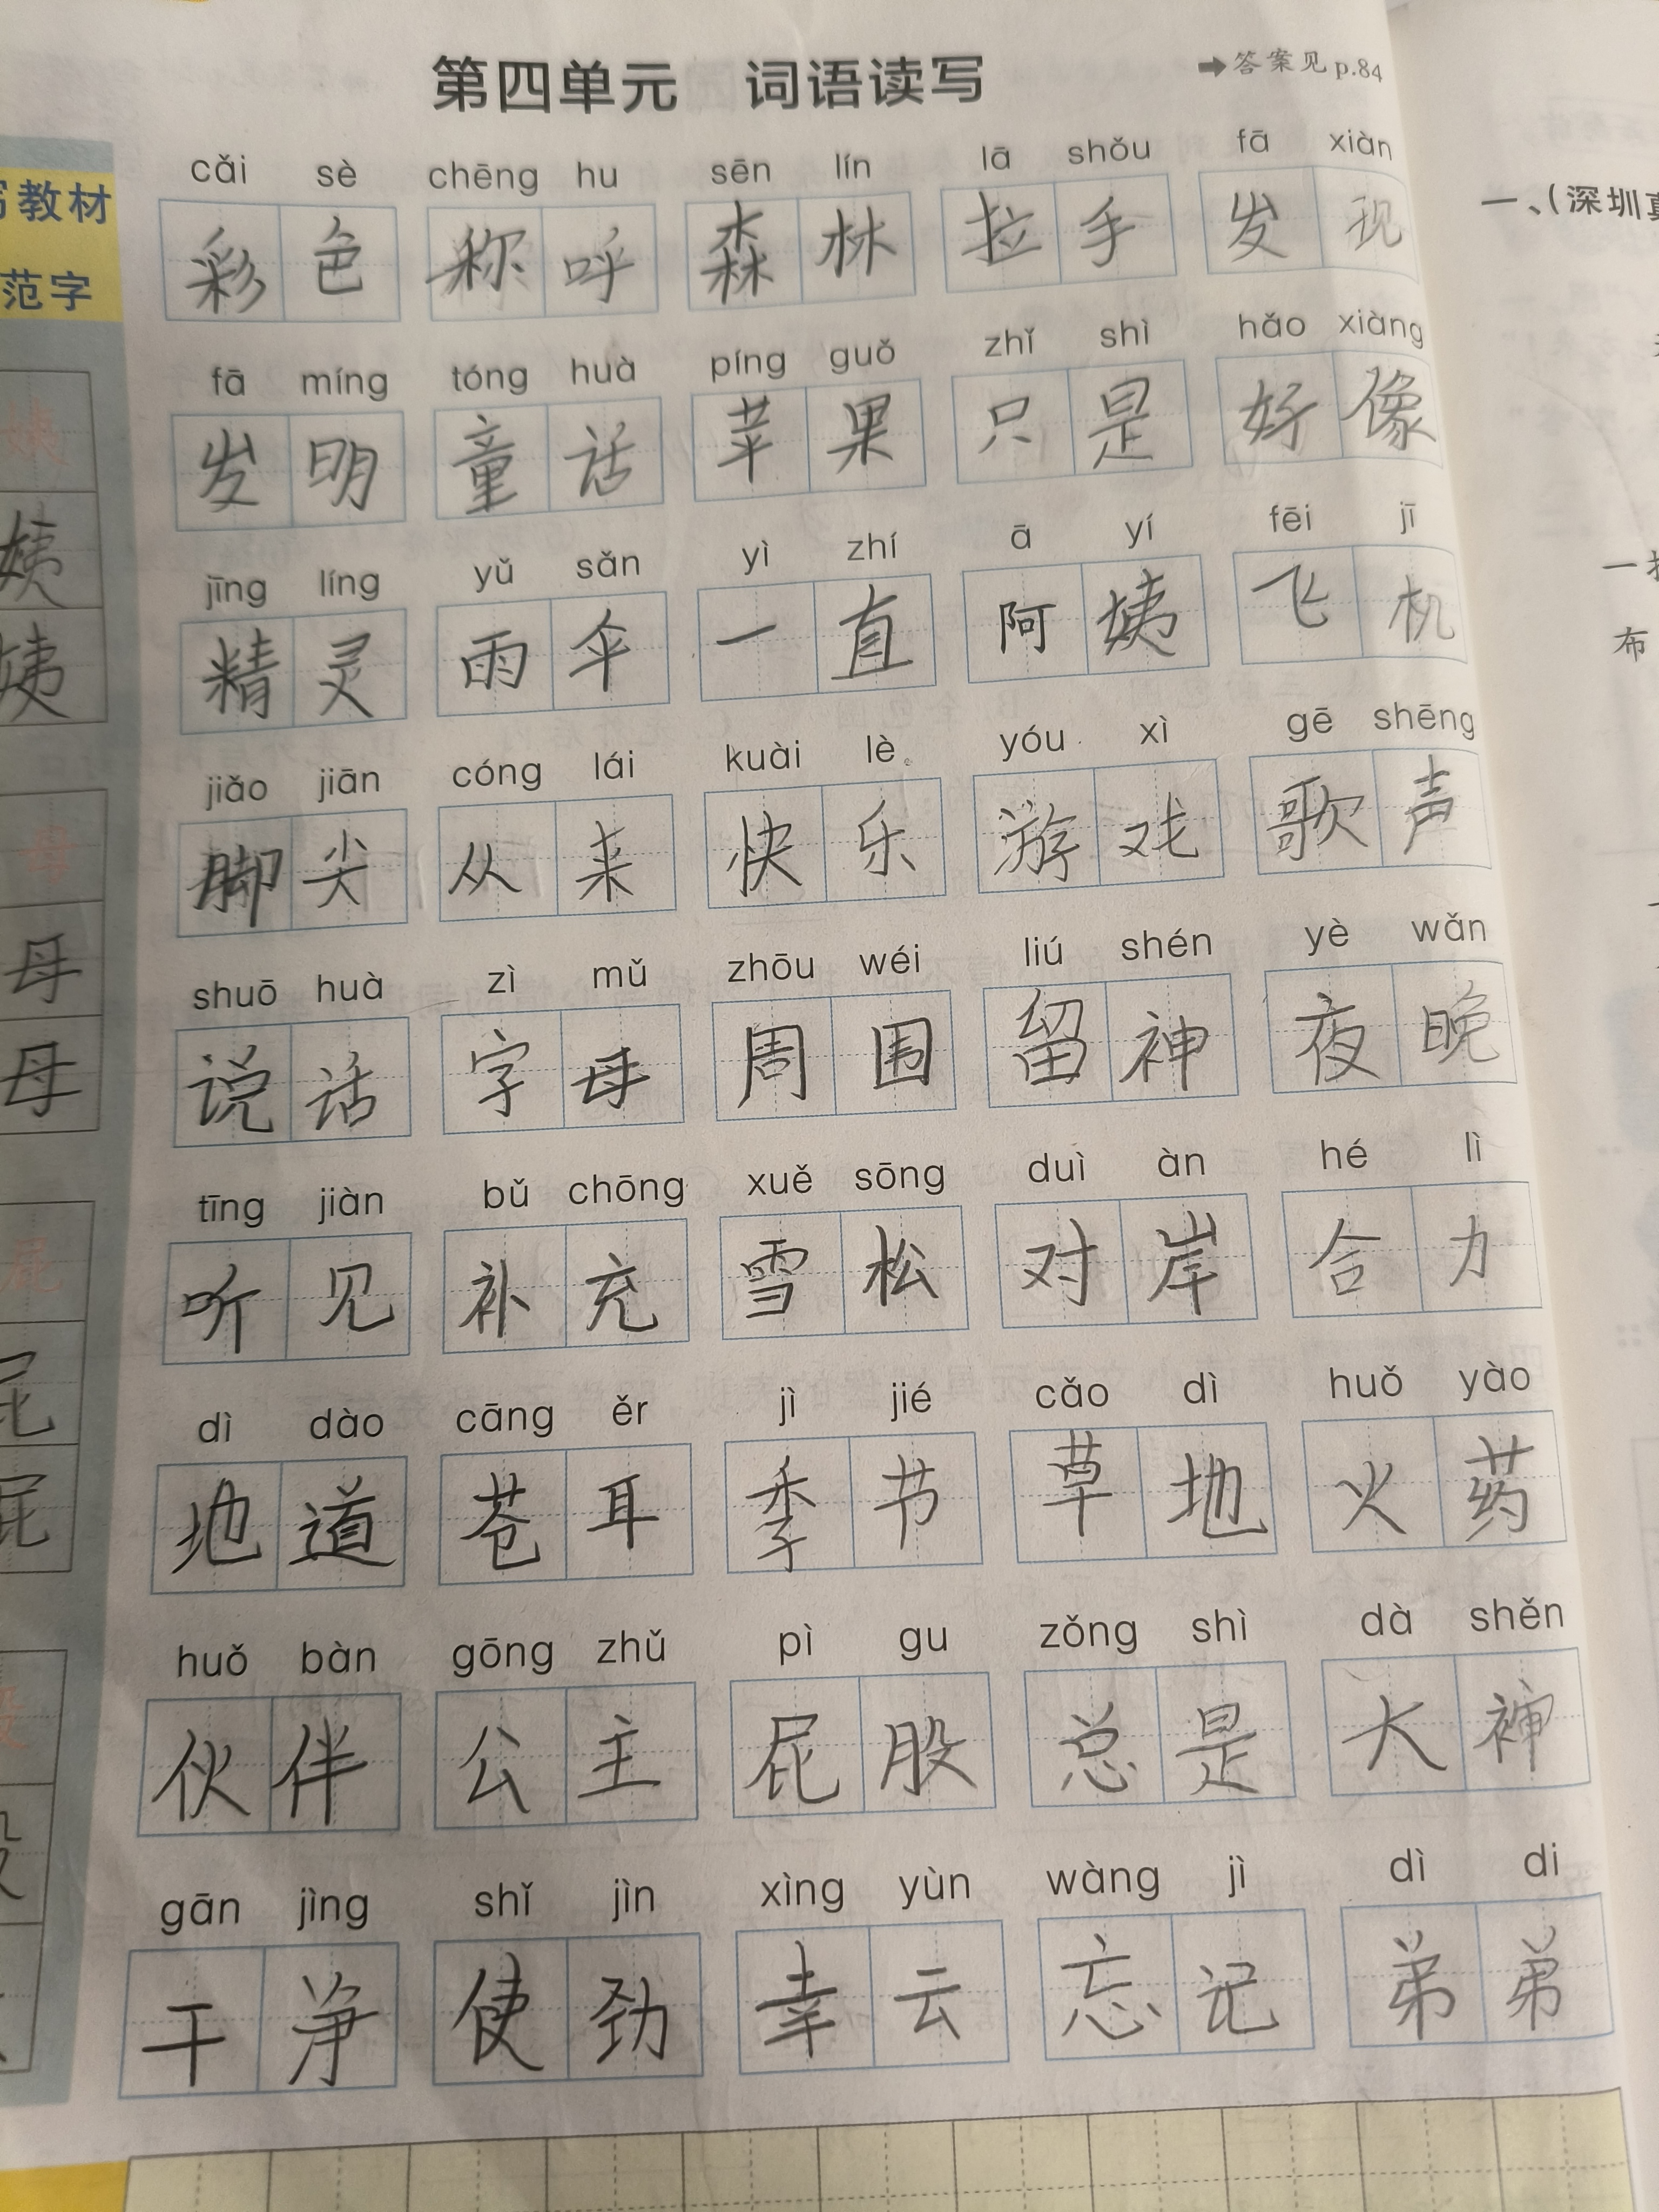 第四单元 词语读写 ➡答案见p.84
cǎi sè chēng hu sēn lín lā shǒu fā xiàn
彩色 称呼 森林 拉手 发现
fā míng tóng huà píng guǒ zhǐ shì hǎo xiàng
发明 童话 苹果 只是 好像
jīng líng yǔ sǎn yì zhí ā yí fēi jī
精灵 雨伞 一直 阿姨 飞机
jiǎo jiān cóng lái kuài lè yóu xì gē shēng
脚尖 从来 快乐 游戏 歌声
shuō huà zì mǔ zhōu wéi liú shén yè wǎn
说话 字母 周围 留神 夜晚
tīng jiàn bǔ chōng xuě sōng duì àn hé lì
听见 补充 雪松 对岸 合力
dì dào cāng ěr jì jié cǎo dì huǒ yào
地道 苍耳 季节 草地 火药
huǒ bàn gōng zhǔ pì gu zǒng shì dà shěn
伙伴 公主 屁股 总是 大
gān jìng shǐ jìn xìng yùn wàng jì dì di
干净 使劲 幸云 忘记 弟弟
写教材
范字
姨
姨
姨
母
母
母
屁
屁
屁
股
股
一、(深圳
布